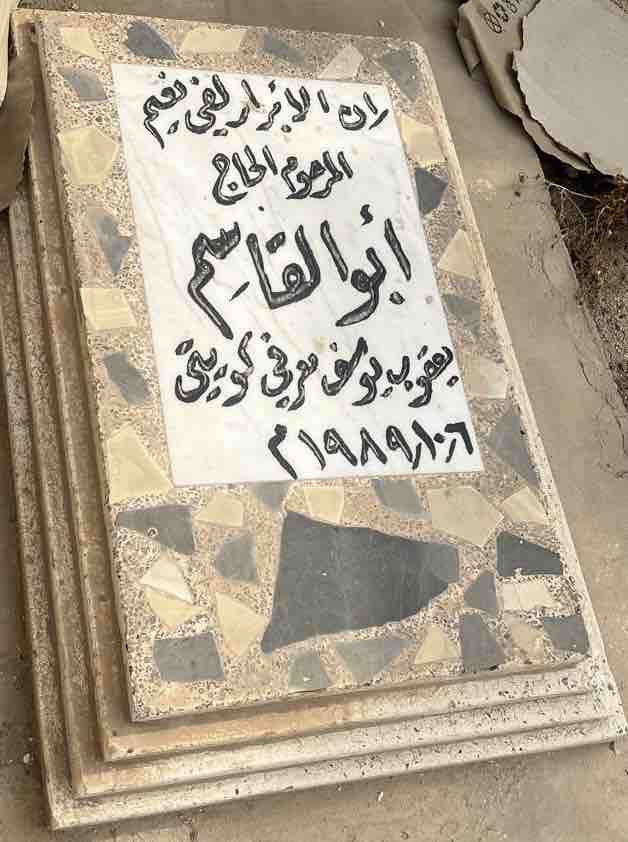 إن الأبرار لفي نعيم
المرحوم الحاج
أبو القاسم
يعقوب يوسف معرفي كويتي
١٩٨٩/١٠/٦م